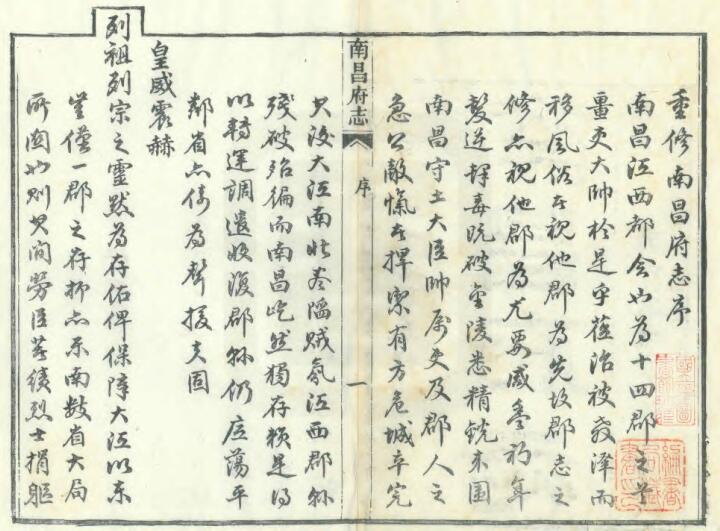 重修南昌府志序
南昌江西都会也為十四郡之首
畺吏大帥於是乎蒞治被教澤而
移風俗在視他郡為先故郡志之
修亦視他郡為尤要咸豐初年
髮逆肆毒既破金陵悉精銳来圍
南昌守土大臣帥屬吏及郡人之
急公敵愾者捍禦有方危城卒完
南昌府志
序
一
其後大江南北陷賊氛江西郡縣
殘破殆徧而南昌屹然獨存賴是得
以轉運調遣收復郡縣仍底蕩平
鄰省亦倚為聲援夫固
皇威震赫
列祖列宗之靈默為存佑俾保障大江以東
豈僅一郡之存抑亦東南數省大局
所関也則其间勞臣茂績烈士捐軀